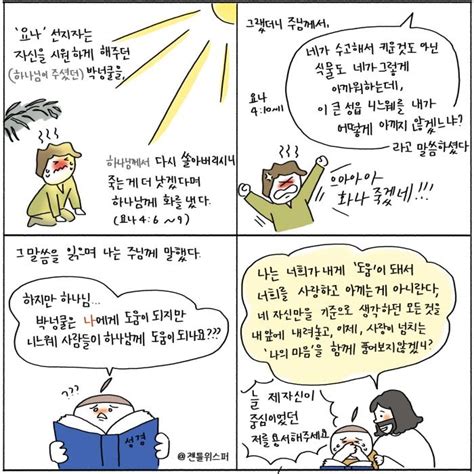 '요나' 선지자는
자신을 시원하게 해주던
(하나님이 주셨던) 박넝쿨을,
하나님께서 다시 쓸어버리시니
죽는게 더 낫겠다며
하나님께 화를 냈다.
(요나 4:6 ~9)
그랬더니 주님께서,
네가 수고해서 키운것도 아닌
식물도 네가 그렇게
아까워하는데,
이 큰 성읍 니느웨를 내가
어떻게 아끼지 않겠느냐?
요나
4:10~11
라고 말씀하셨다
으아아아
화나 죽겠네!!!
그 말씀을 읽으며 나는 주님께 말했다.
하지만 하나님...
박넝쿨은 나에게 도움이 되지만
니느웨 사람들이 하나님께 도움이 되나요???
???
성경
@젠틀위스퍼
나는 너희가 내게 '도움'이 돼서
너희를 사랑하고 아끼는게 아니란다,
네 자신만을 기준으로 생각하던 모든것을
내 앞에 내려놓고, 이제, 사랑이 넘치는
'나의 마음'을 함께 품어보지않겠니?
늘 제 자신이
중심이었던
저를 용서해주세요